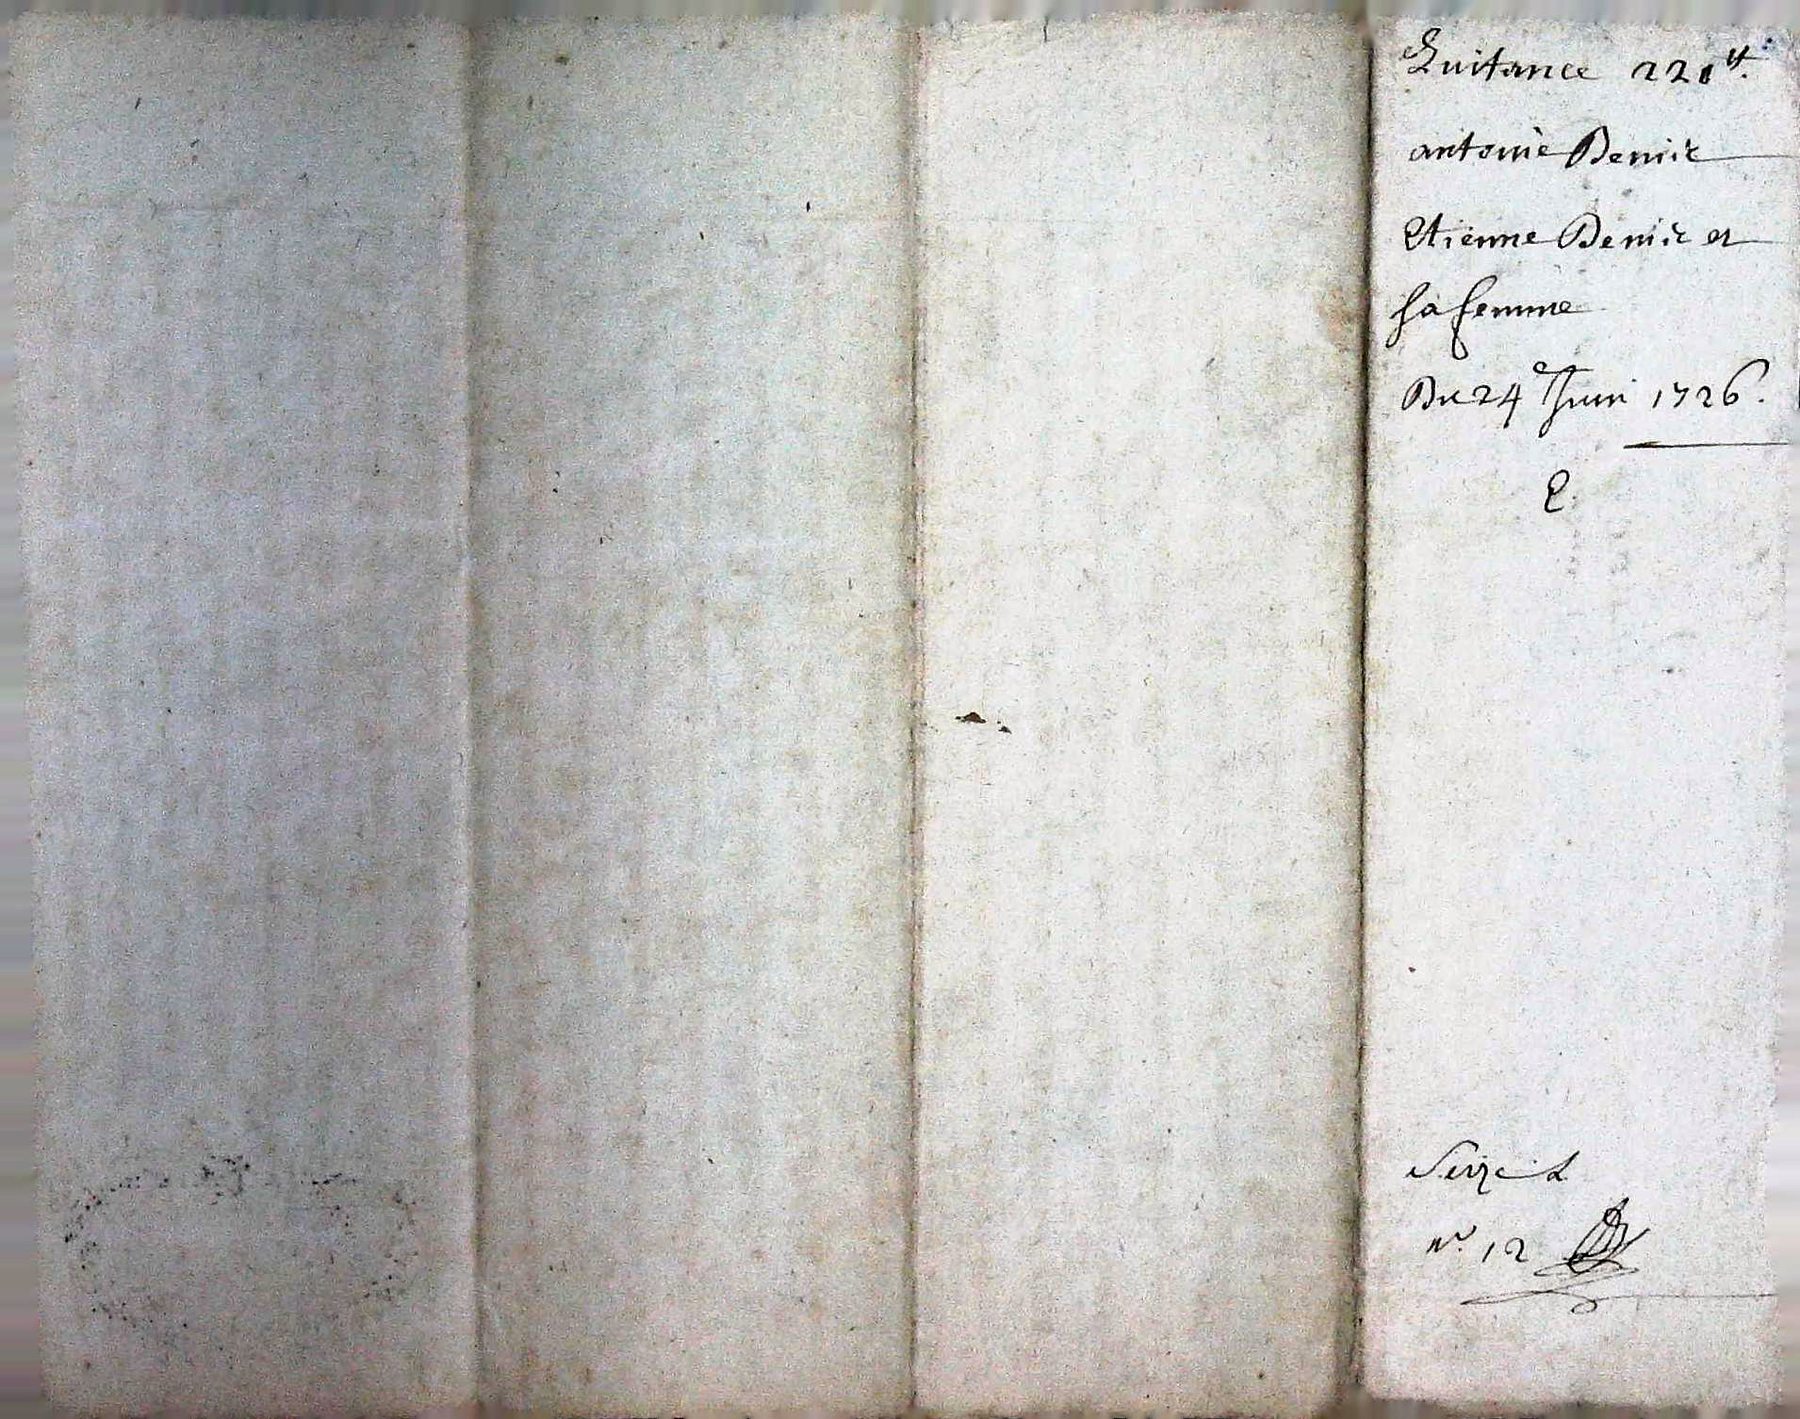 Quitance 221tt.
antoine Denis
Etienne Denis et
sa femme
Du 24 Juin 1726.
E.
Seize
no. 12